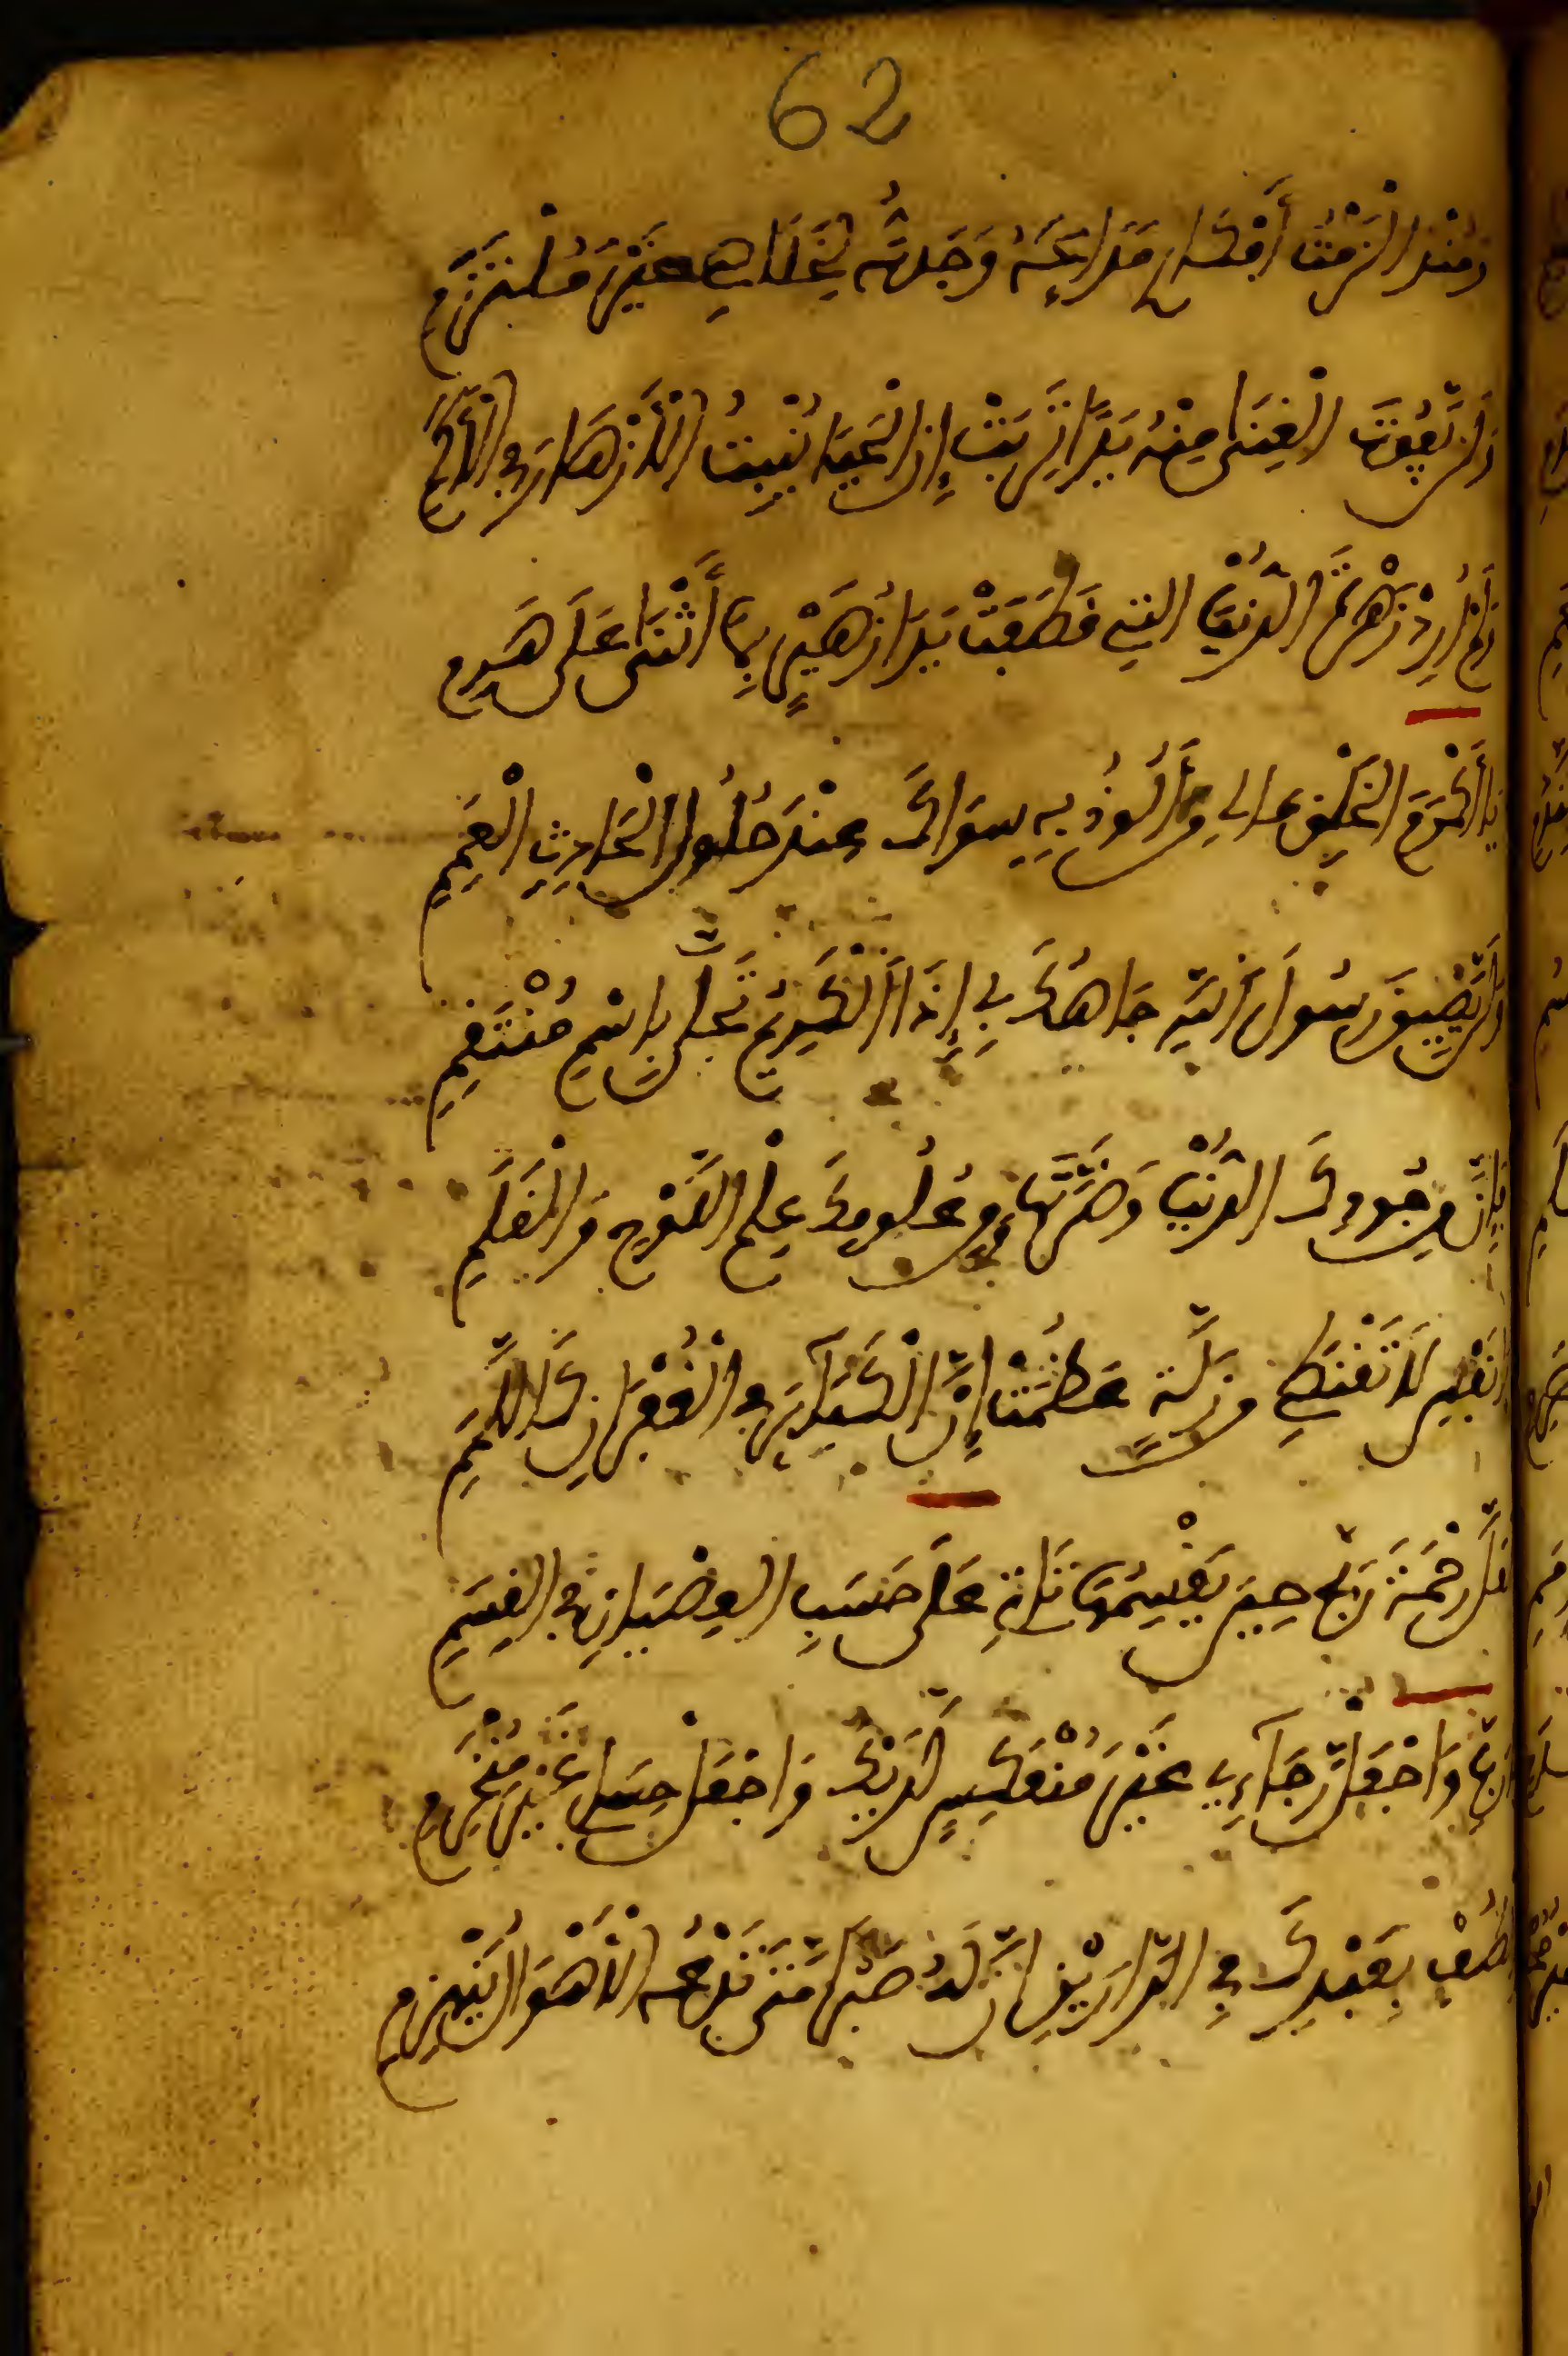 62
وَمُنْذُ الْزَمْتُ أَفْكَارِي مَدَائِحَهُ وَجَدتُّهُ لِخَلَاصِي خَيْرَ مُلْتَزِمِ
وَلَنْ يَّفُوتَ الْغِنَى مِنْهُ يَدًا تَرِبَتْ إِنَّ الْحَيَا يُنْبِتُ الْأَزْهَارَ فِي الْأَكَمِ
وَلَمْ أُرِدْ زَهْرَةَ الدُّنْيَا الَّتِي اقْتَطَفَتْ يَدَا زُهَيْرٍ بِمَا أَثْنَى عَلَى هَرِمِ
يَا أَكْرَمَ الْخَلْقِ مَا لِي مَنْ أَلُوذُ بِهِ سِوَاكَ عِنْدَ حُلُولِ الْحَادِثِ الْعَمِمِ
وَلَنْ يَّضِيقَ رَسُولَ اللَّهِ جَاهُكَ بِي إِذَا الْكَرِيمُ تَجَلَّى بِاسْمِ مُنْتَقِمِ
فَإِنَّ مِنْ جُودِكَ الدُّنْيَا وَضَرَّتَهَا وَمِنْ عُلُومِكَ عِلْمُ اللَّوْحِ وَالْقَلَمِ
يَا نَفْسُ لَا تَقْنَطِي مِنْ زَلَّةٍ عَظُمَتْ إِنَّ الْكَبَائِرَ فِي الْغُفْرَانِ كَاللَّمَمِ
لَعَلَّ رَحْمَةَ رَبِّي حِينَ يَقْسِمُهَا تَاتِي عَلَى حَسَبِ الْعِصْيَانِ فِي الْقِسَمِ
يَا رَبِّ وَاجْعَلْ رَجَاءِي غَيْرَ مُنْعَكِسٍ لَدَيْكَ وَاجْعَلْ حِسَابِي غَيْرَ مُنْخَرِمِ
وَالْطُفْ بِعَبْدِكَ فِي الدَّارَيْنِ إِنَّ لَهُ صَبْرًا مَّتَى تَدْعُهُ الْأَهْوَالُ يَنْهَزِمِ